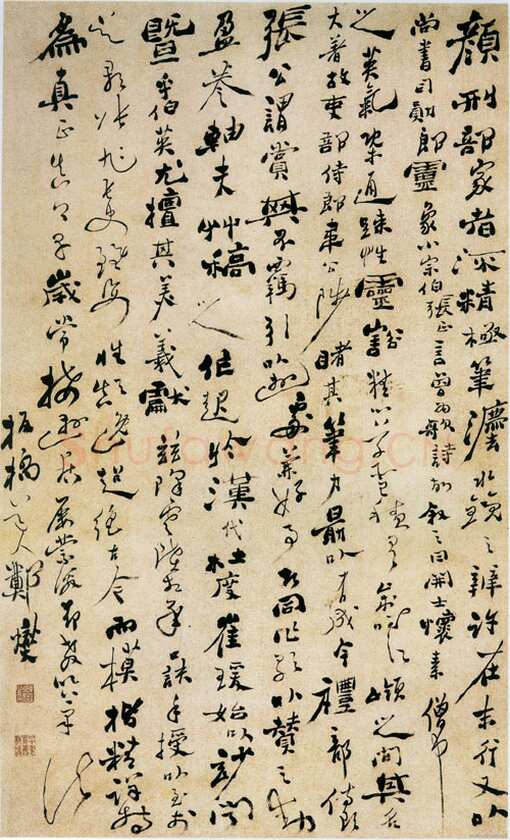 顏刑部家者流精極筆灋水鏡之辨許在末行又以
尚書司勛郎靈象小宗伯張正言曾為歌詩故叙之曰開士懷素僧中
之英氣概通疎性靈豁精心草聖積有歲時江嶺之間其名
大著故吏部侍郎韋公陟睹其筆力勖以有成今禮部侍郎
張公謂賞其不羈引以遊處兼好事者同作歌以贊之動
盈卷軸夫艸稿之作起於漢代杜度崔瑗始以妙聞
暨乎伯英尤擅其美羲獻茲降虞陸相承口訣手授以至於
吳郡張旭長史雖姿性顛逸超絕古今而模楷精詳特
為真正真卿早歲常接遊居屢蒙激昂教以筆法
板橋道人鄭燮
shufawang.cn